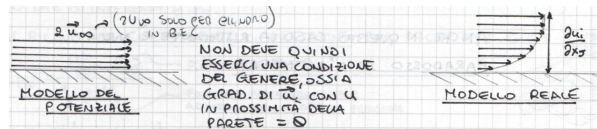 2 u∞ → (2 u∞ SOLO PER CILINDRO)
IN BEC
NON DEVE QUINDI
ESSERCI UNA CONDIZIONE
DEL GENERE, OSSIA
GRAD. DI u, CON u
IN PROSSIMITÀ DELLA
PARETE = 0
MODELLO DEL
POTENZIALE
∂ui
∂xj
MODELLO REALE